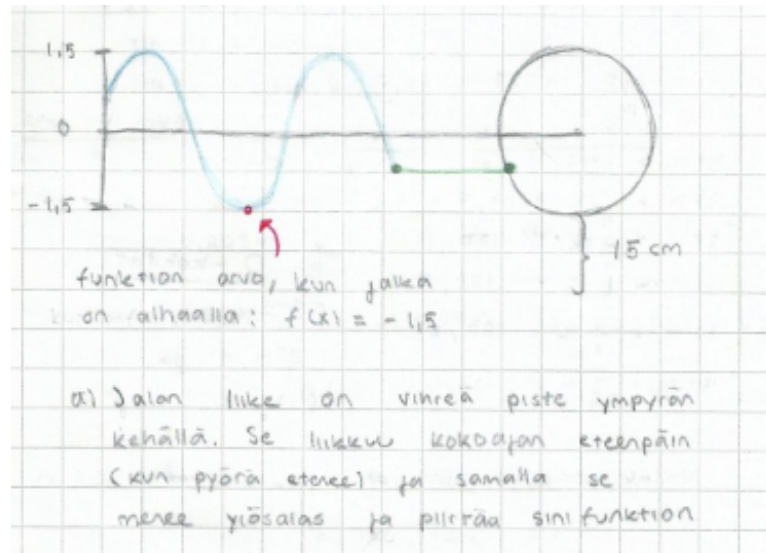 1,5
0
-1,5
15 cm
funktion arvo, kun jalka
on alhaalla: f(x) = -1,5
a) Jalan liike on vihreä piste ympyrän
kehällä. Se liikkuu kokoajan eteenpäin
(kun pyörä etenee) ja samalla se
menee ylösalas ja piirtää sinifunktion